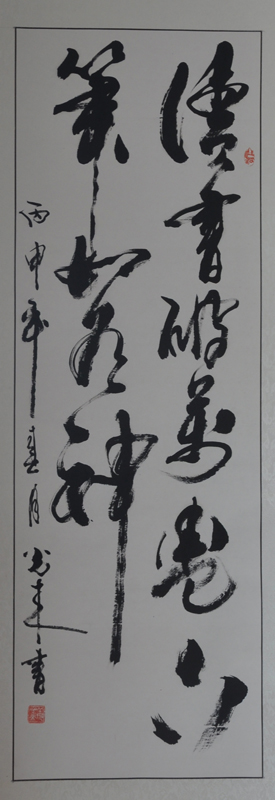 讀書破萬卷下
筆如有神
丙申年春月光來書